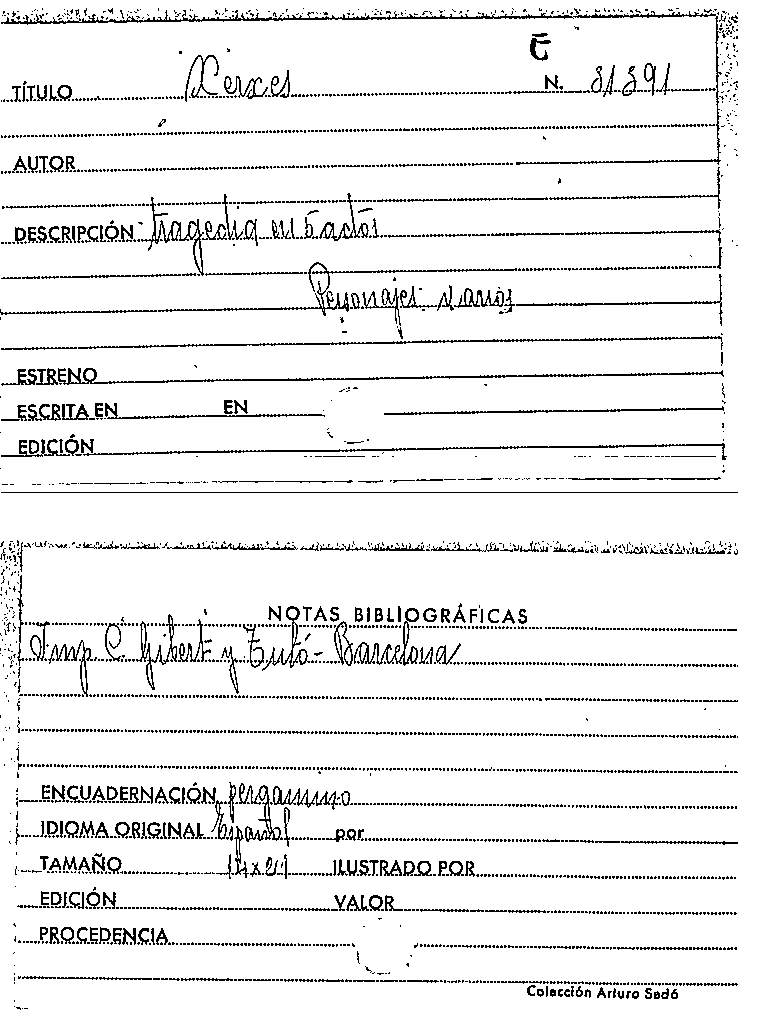 E
TÍTULO Xerxes N. 31391
AUTOR
DESCRIPCIÓN tragedia en 5 actos
Personajes varios
ESTRENO
ESCRITA EN EN
EDICIÓN
NOTAS BIBLIOGRÁFICAS
Imp C. Gibert y Tutó - Barcelona
ENCUADERNACIÓN pergamino
IDIOMA ORIGINAL Español por
TAMAÑO ILUSTRADO POR
EDICIÓN VALOR
PROCEDENCIA
Colección Arturo Sedó